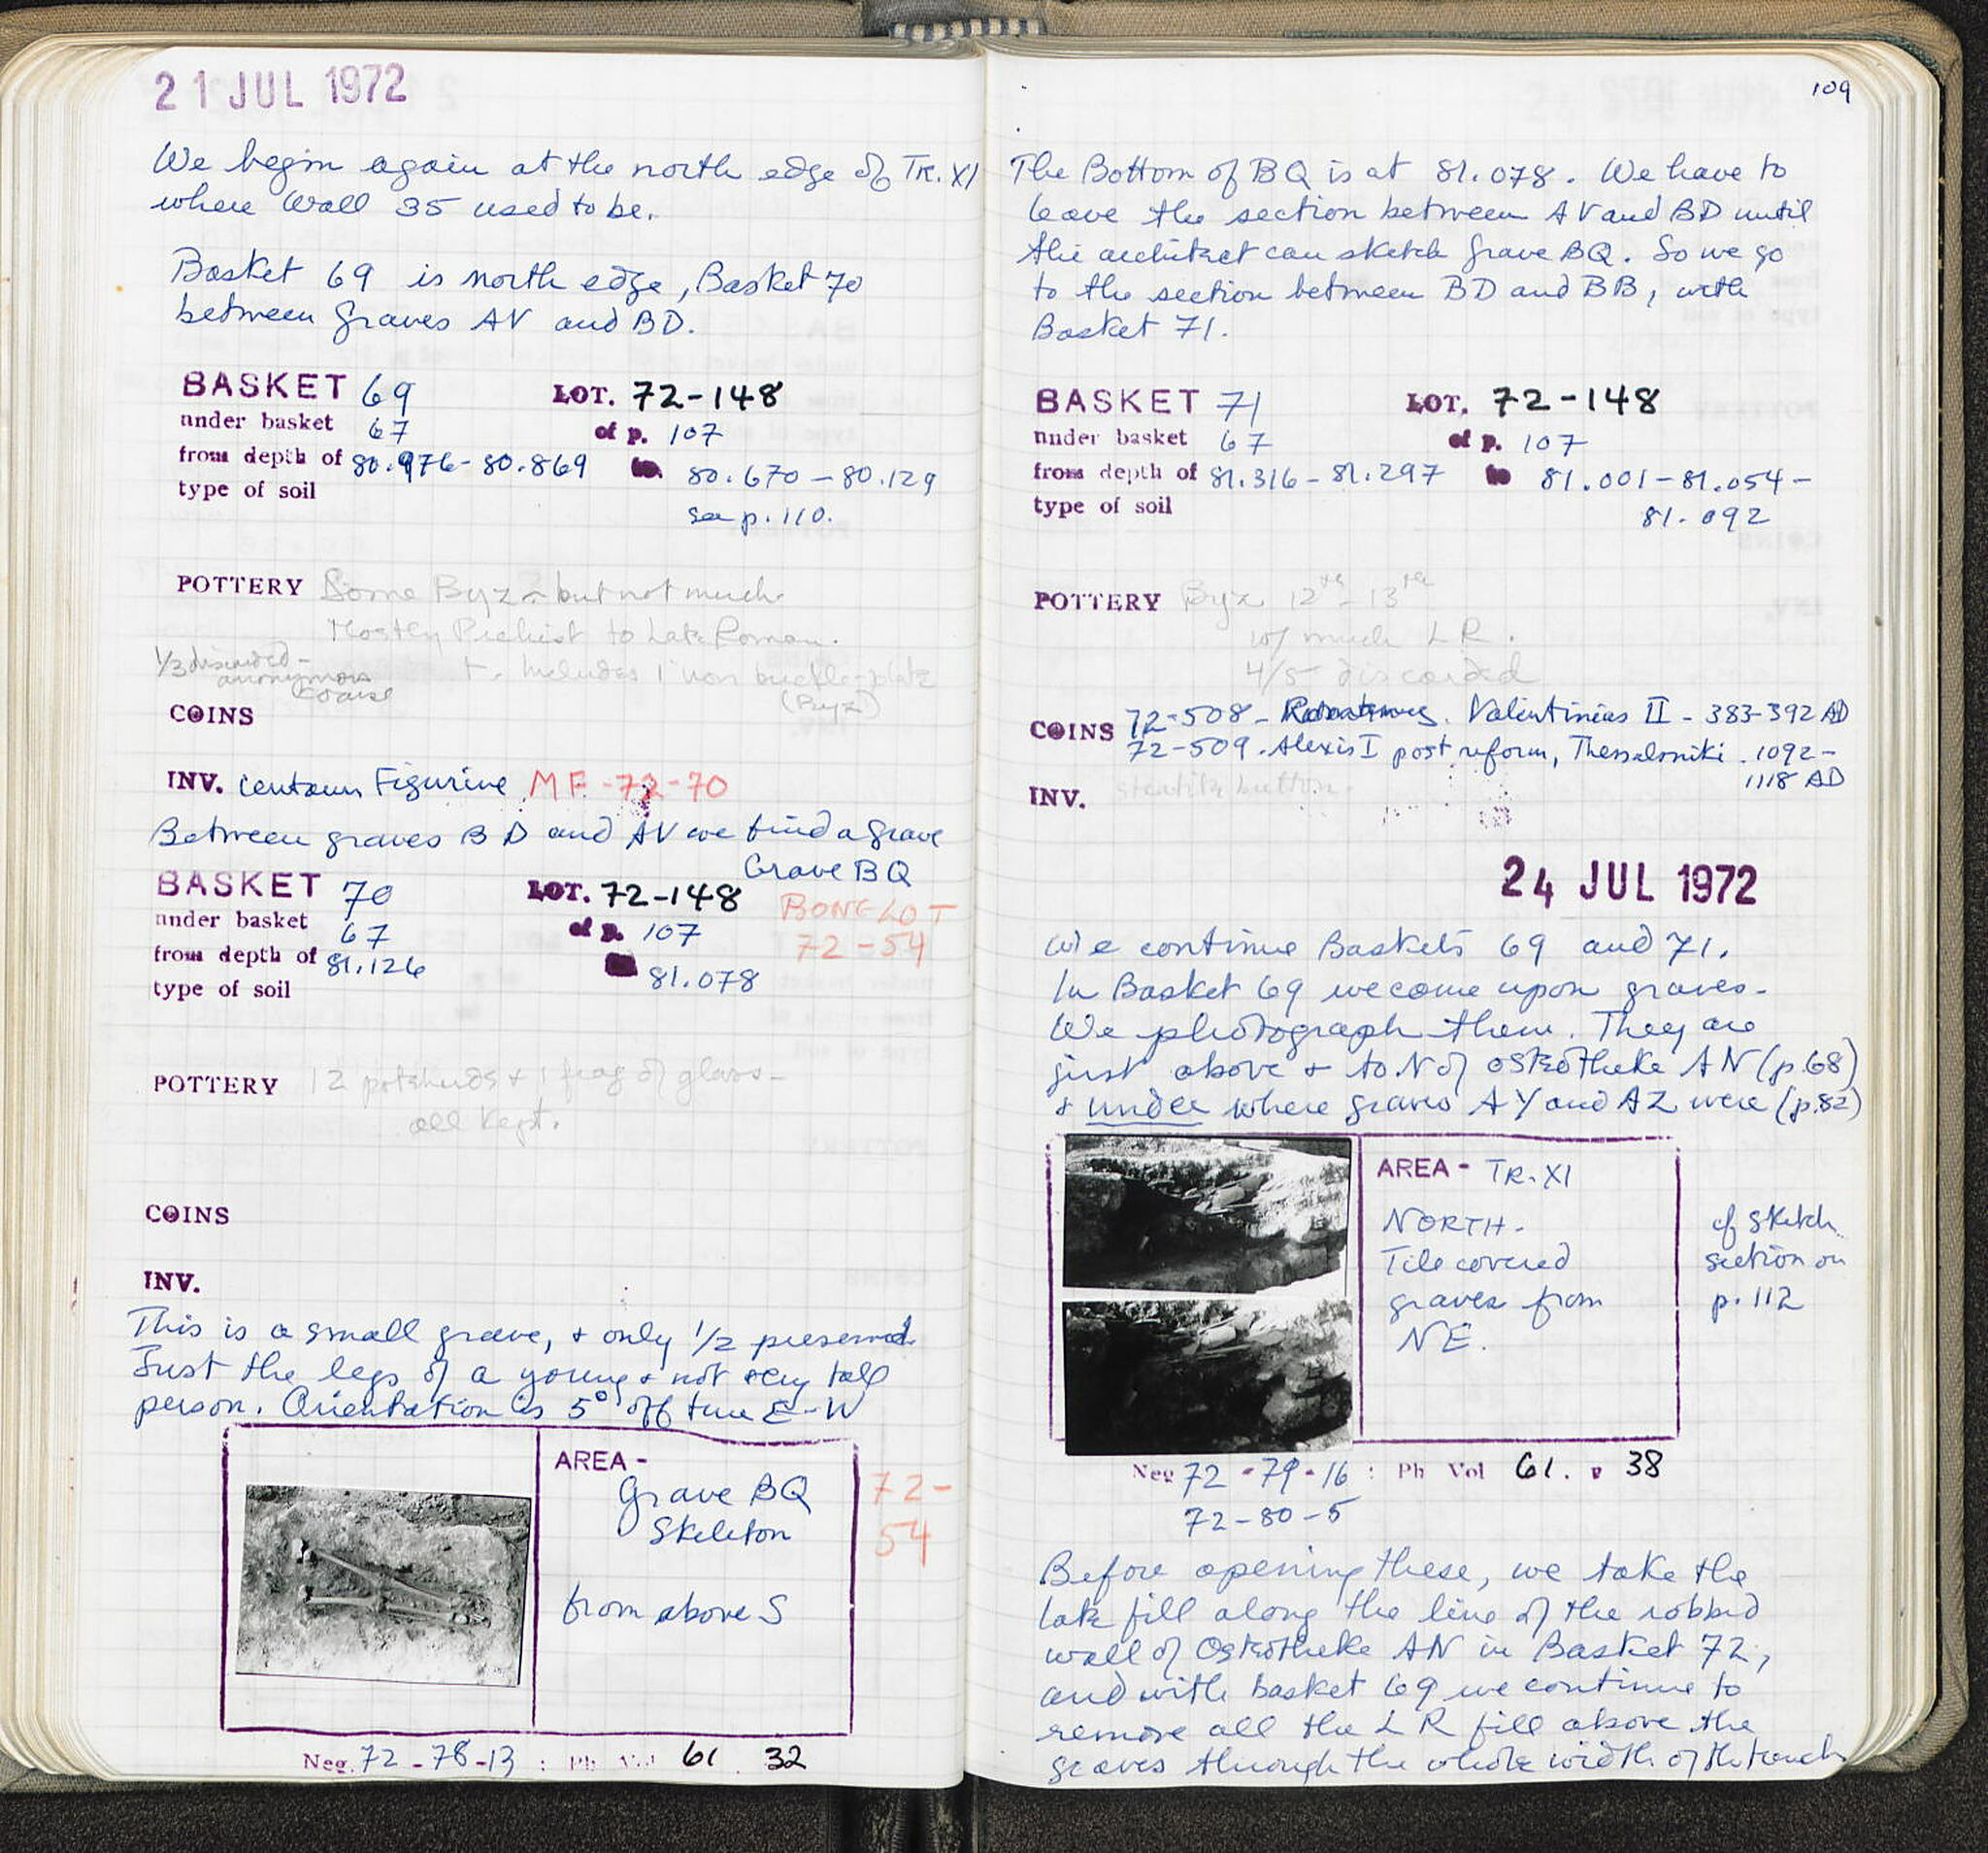 21 JUL 1972
We begin again at the north edge of Tr. XI
where Wall 35 used to be.
Basket 69 is north edge, Basket 70
between graves AV and BD.
BASKET 69 LOT. 72-148
under basket 67 of p. 107
from depth of 80.976-80.869 to 80.670-80.129
type of soil see p. 110.
POTTERY Some Byz - but not much
Mostly Prehist to Late Roman.
1/3 discarded - anonymous coarse
+. Includes 1 iron buckle-plate
(Byz)
COINS
INV. centaur Figurine MF-72-70
Between graves BD and AV we find a grave
Grave BQ
BASKET 70 LOT. 72-148 BONE LOT
under basket 67 of p. 107 72-54
from depth of 81.126 81.078
type of soil
POTTERY 12 potsherds + 1 frag of glass -
all kept.
COINS
INV.
This is a small grave, + only 1/2 preserved.
Just the legs of a young + not very tall
person. Orientation is 5° off true E-W
AREA -
Grave BQ 72-
Skeleton 54
from above S
Neg. 72-78-13 : Ph Vol 61 . 32
109
The Bottom of BQ is at 81.078. We have to
leave the section between AV and BD until
the architect can sketch grave BQ. So we go
to the section between BD and BB, with
Basket 71.
BASKET 71 LOT. 72-148
under basket 67 of p. 107
from depth of 81.316-81.297 to 81.001-81.054-
type of soil 81.092
POTTERY Byz. 12th-13th
w/ much LR.
4/5 discarded
COINS 72-508- Valentinias II - 383-392 AD
72-509. Alexis I post reform, Thessaloniki. 1092-
1118 AD
INV. steatite button
24 JUL 1972
We continue Baskets 69 and 71.
In Basket 69 we come upon graves.
We photograph them. They are
just above + to N of osteotheke AN (p.68)
+ under where graves AY and AZ were (p.82)
AREA - TR. XI
NORTH.
Tile covered
graves from
NE.
cf sketch
section on
p. 112
Neg 72-79-16 : Ph Vol 61. p 38
72-80-5
Before opening these, we take the
late fill along the line of the robbed
wall of Osteotheke AN in Basket 72,
and with basket 69 we continue to
remove all the LR fill above the
graves through the whole width of the trench